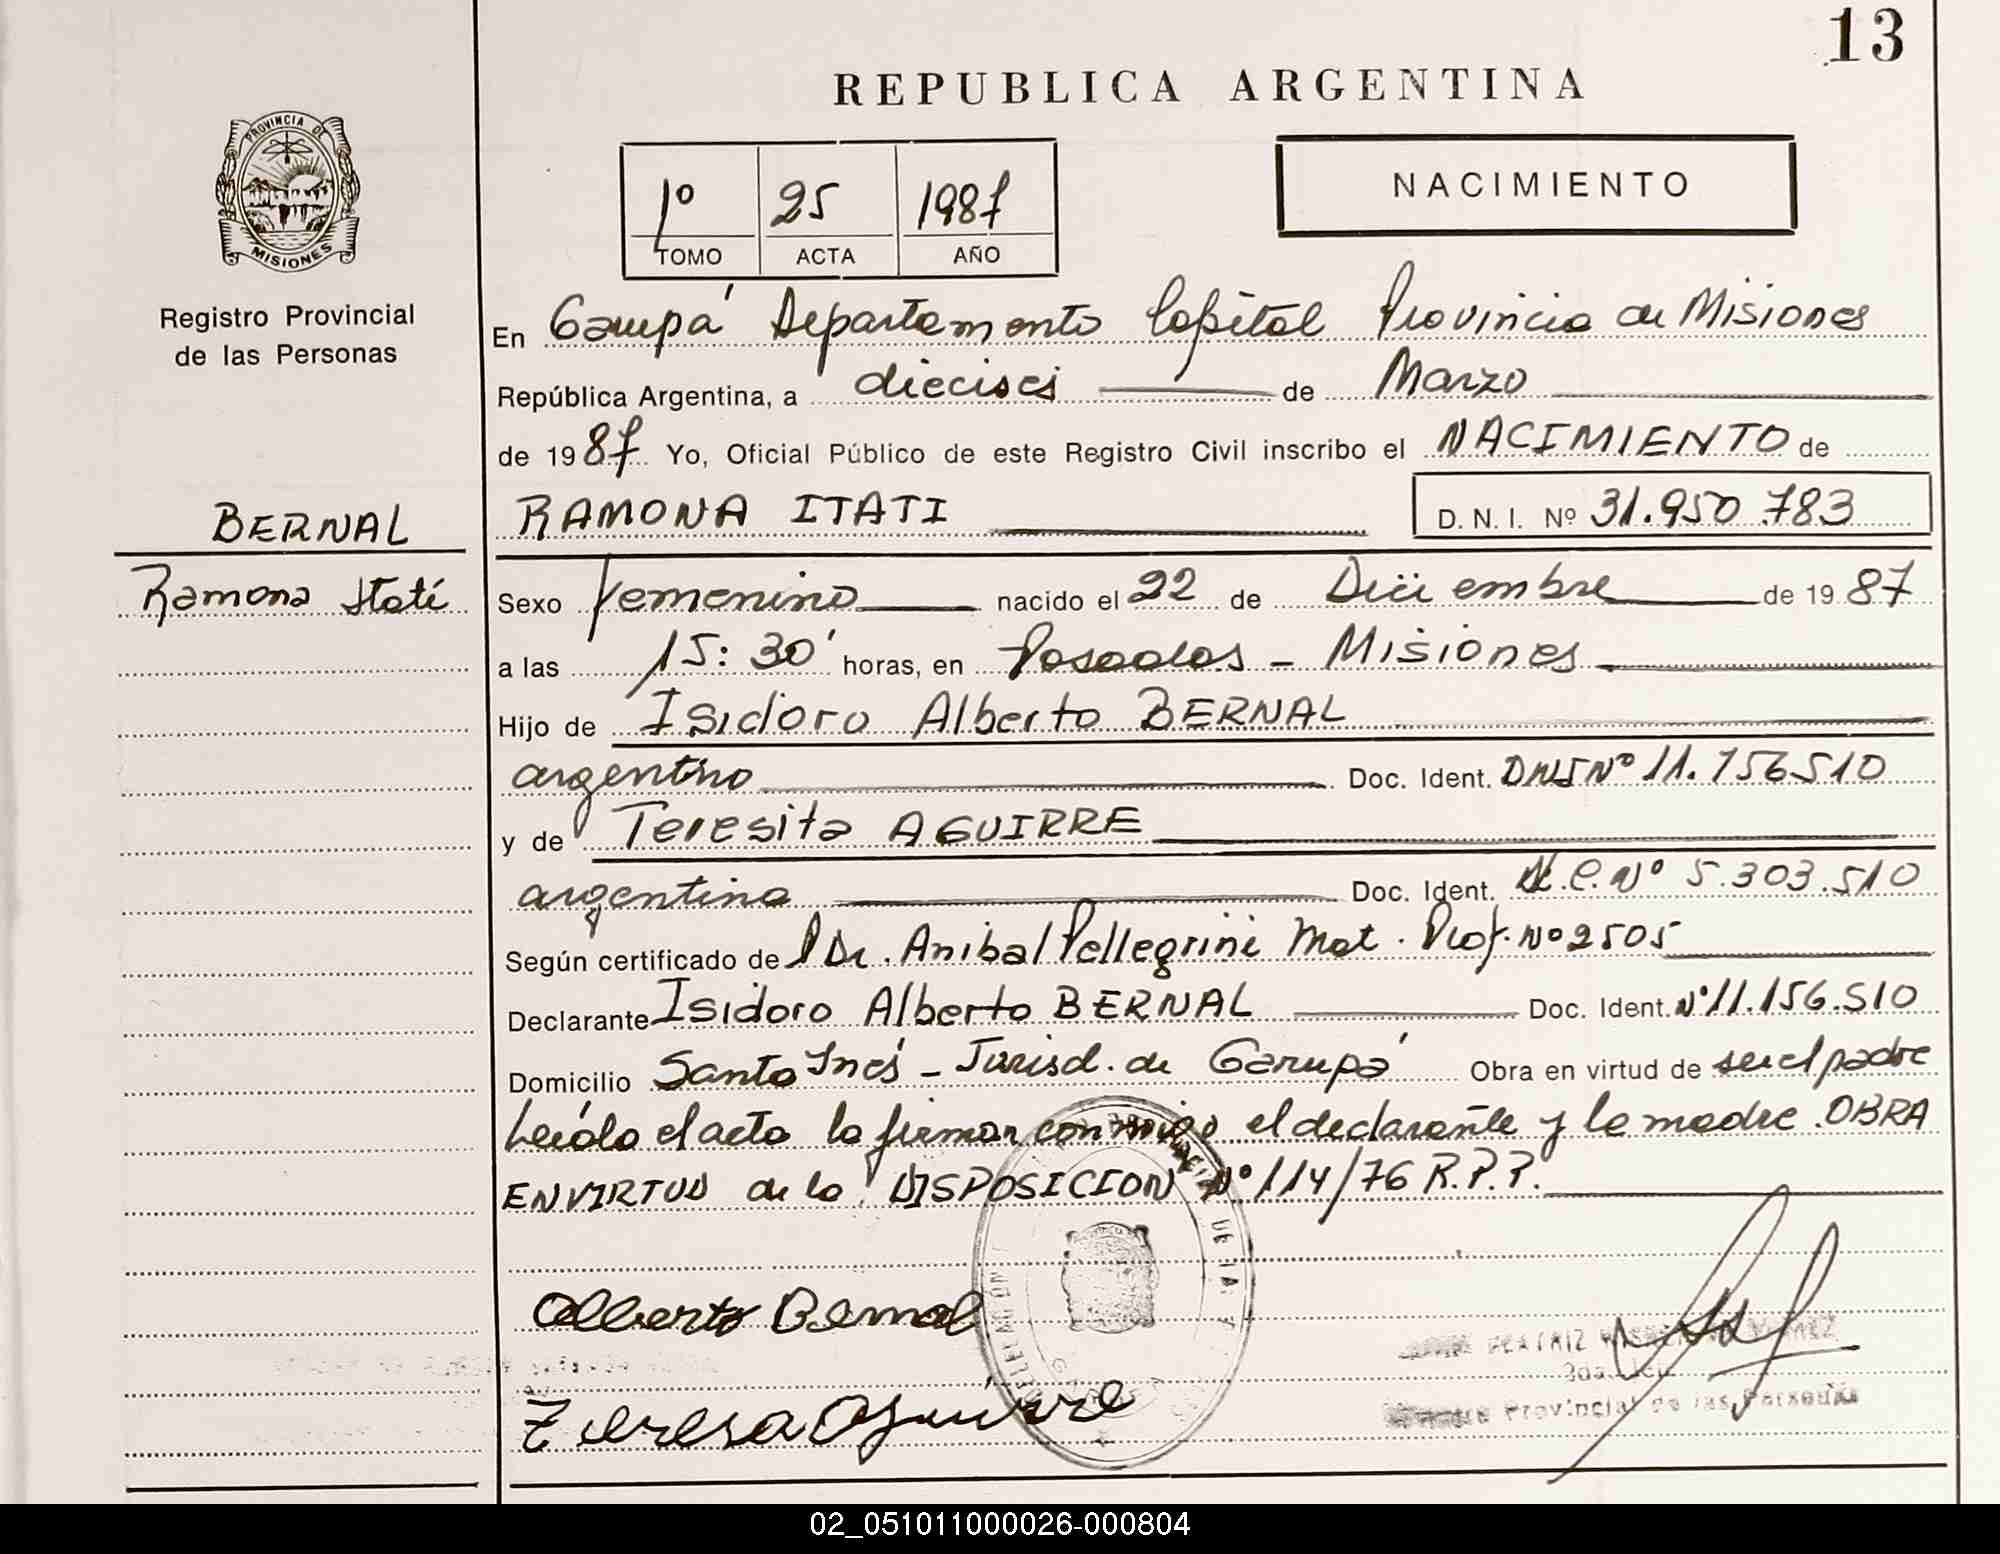 13
REPUBLICA ARGENTINA
PROVINCIA DE
MISIONES
Registro Provincial
de las Personas
1º 25 1987
TOMO ACTA AÑO
NACIMIENTO
En Garupá Departamento Capital Provincia de Misiones
República Argentina, a dieciseis de Marzo
de 1987 Yo, Oficial Público de este Registro Civil inscribo el NACIMIENTO de
BERNAL
Ramona Itatí
RAMONA ITATI D. N. I. Nº 31.950.783
Sexo femenino nacido el 22 de Diciembre de 1987
a las 15:30' horas, en Posadas - Misiones
Hijo de Isidoro Alberto BERNAL
argentino Doc. Ident. DNI Nº 11.156510
y de Teresita AGUIRRE
argentina Doc. Ident. Nº 5.303.510
Según certificado de Dr. Anibal Pellegrini Mat. Prof. Nº 2505
Declarante Isidoro Alberto BERNAL Doc. Ident. Nº 11.156.510
Domicilio Santa Inés - Jurisd. de Garupá Obra en virtud de ser el padre
Leída el acta la firman conmigo el declarante y la madre. OBRA
EN VIRTUD de la DISPOSICION Nº 114/76 R.P.P.
Alberto Bernal
Teresa Aguirre
BEATRIZ
Provincial de las Personas
02_051011000026-000804